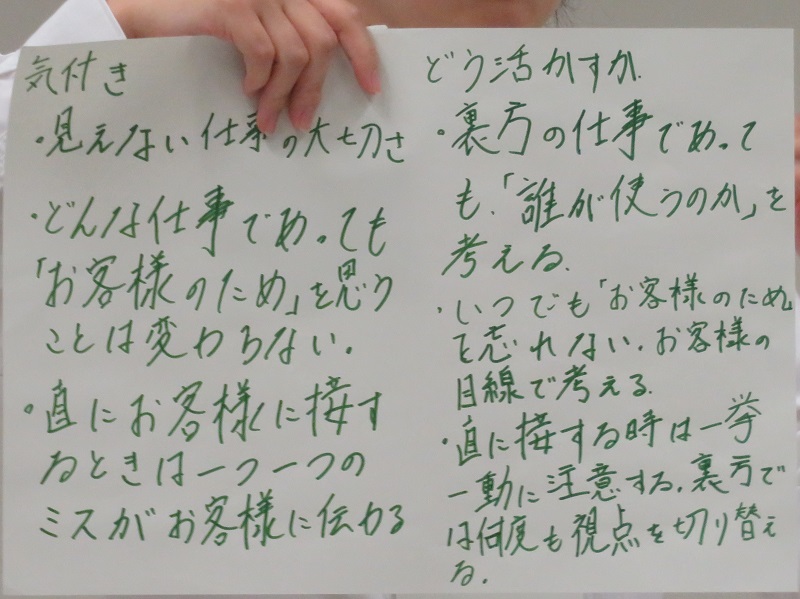 気付き
・見えない仕事の大切さ
・どんな仕事であっても
「お客様のため」を思う
ことは変わらない。
・直にお客様に接す
るときは一つ一つの
ミスがお客様に伝わる
どう活かすか.
・裏方の仕事であって
も、「誰が使うのか」を
考える.
・いつでも「お客様のため」
を忘れない.お客様の
目線で考える.
・直に接する時は一挙
一動に注意する.裏方で
は何度も視点を切り替え
る.